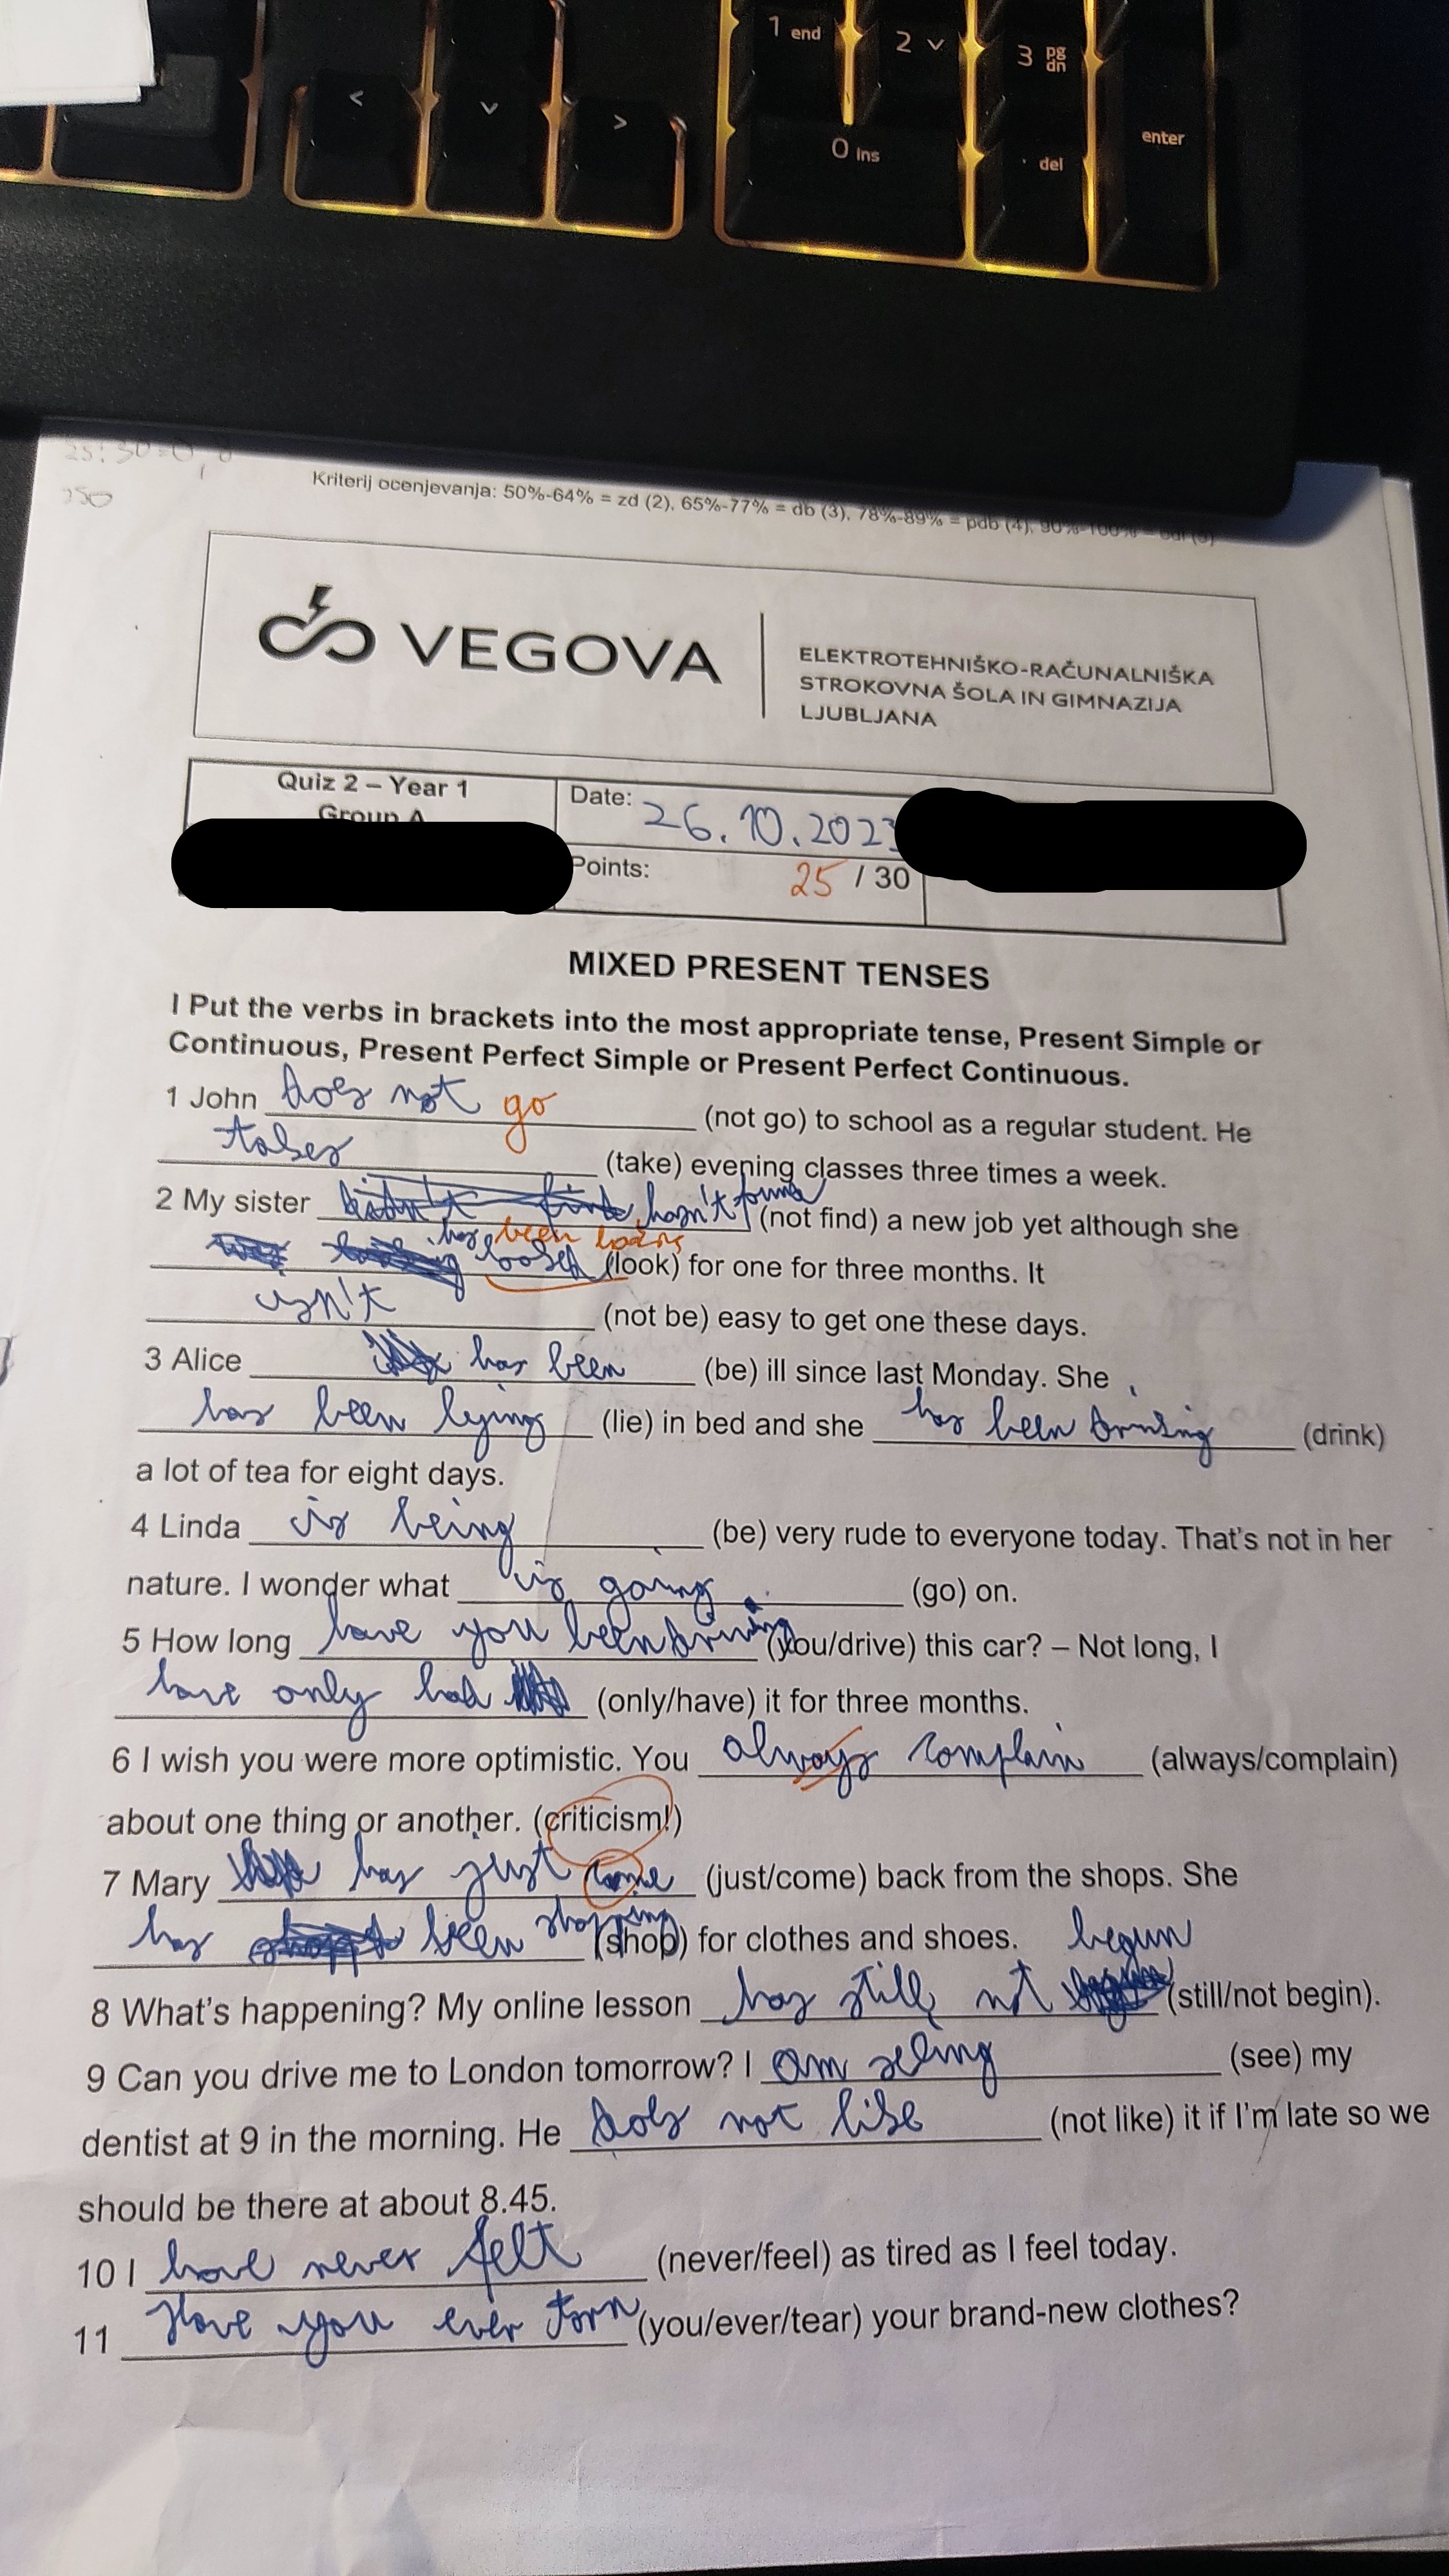 1 end
2
3 pg dn
0 ins
. del
enter
<
>
250
Kriterij ocenjevanja: 50%-64% = zd (2), 65%-77% = db (3), 78%-89% = pdb (4), 90%-100% =
VEGOVA
ELEKTROTEHNIŠKO-RAČUNALNIŠKA
STROKOVNA ŠOLA IN GIMNAZIJA
LJUBLJANA
Quiz 2 – Year 1
Group A
Date: 26.10.2023
Points: 25 / 30
MIXED PRESENT TENSES
I Put the verbs in brackets into the most appropriate tense, Present Simple or
Continuous, Present Perfect Simple or Present Perfect Continuous.
1 John does not go (not go) to school as a regular student. He
takes (take) evening classes three times a week.
2 My sister hasn't found (not find) a new job yet although she
has been looked (look) for one for three months. It
isn't (not be) easy to get one these days.
3 Alice has been (be) ill since last Monday. She
has been lying (lie) in bed and she has been drinking (drink)
a lot of tea for eight days.
4 Linda is being (be) very rude to everyone today. That's not in her
nature. I wonder what is going (go) on.
5 How long have you been driving (you/drive) this car? – Not long, I
have only had (only/have) it for three months.
6 I wish you were more optimistic. You always complain (always/complain)
about one thing or another. (criticism!)
7 Mary has just come (just/come) back from the shops. She
has been shopping (shop) for clothes and shoes.
8 What's happening? My online lesson has still not begun (still/not begin).
9 Can you drive me to London tomorrow? I am seeing (see) my
dentist at 9 in the morning. He does not like (not like) it if I'm late so we
should be there at about 8.45.
10 I have never felt (never/feel) as tired as I feel today.
11 Have you ever torn (you/ever/tear) your brand-new clothes?